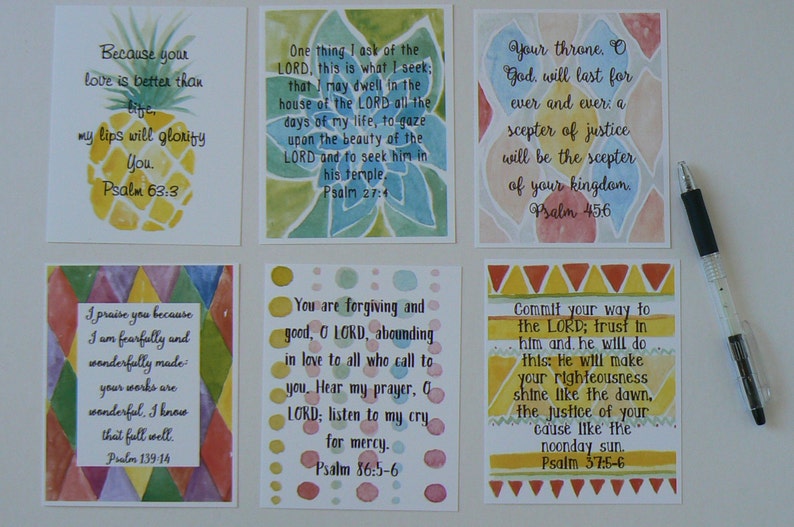 Because your
love is better than
life,
my lips will glorify
You.
Psalm 63:3
One thing I ask of the
LORD, this is what I seek;
that I may dwell in the
house of the LORD all the
days of my life, to gaze
upon the beauty of the
LORD and to seek him in
his temple.
Psalm 27:4
Your throne, O
God, will last for
ever and ever; a
scepter of justice
will be the scepter
of your kingdom.
Psalm 45:6
I praise you because
I am fearfully and
wonderfully made;
your works are
wonderful, I know
that full well.
Psalm 139:14
You are forgiving and
good, O LORD, abounding
in love to all who call to
you. Hear my prayer, O
LORD; listen to my cry
for mercy.
Psalm 86:5-6
Commit your way to
the LORD; trust in
him and he will do
this: He will make
your righteousness
shine like the dawn,
the justice of your
cause like the
noonday sun.
Psalm 37:5-6